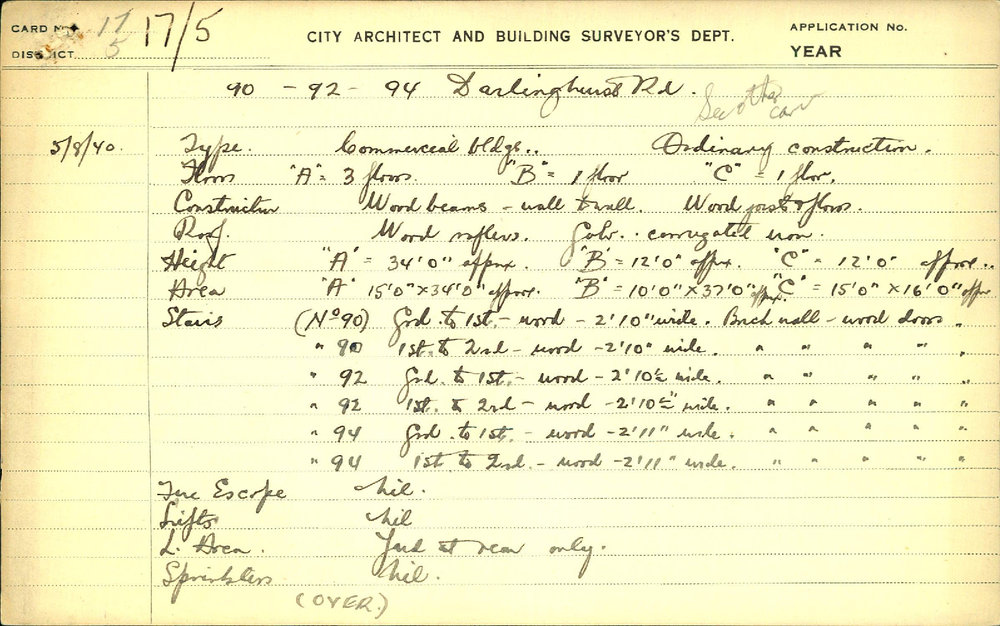 CARD No. 17 17/5 CITY ARCHITECT AND BUILDING SURVEYOR'S DEPT. APPLICATION No.
DISTRICT 5 YEAR
90 - 92 - 94 Darlinghurst Rd.
See other card
5/8/40. Type. Commercial bldgs.. Ordinary construction.
Floors "A" = 3 floors. "B" = 1 floor "C" = 1 floor.
Construction Wood beams - wall to wall. Wood joists & floors.
Roof. Wood rafters. Galv. corrugated iron.
Height "A" = 34'0" approx. "B" = 12'0" approx. "C" = 12'0" approx..
Area "A" 15'0" x 34'0" approx. "B" = 10'0" x 37'0" approx. "C" = 15'0" x 16'0" approx
Stairs (No 90) Grd. to 1st. - wood - 2'10" wide. Brick wall - wood doors.
" 90 1st. to 2nd - wood - 2'10" wide. " " " " "
" 92 Grd. to 1st. - wood - 2'10½" wide. " " " " "
" 92 1st. to 2nd - wood - 2'10½" wide. " " " " "
" 94 Grd. to 1st. - wood - 2'11" wide. " " " " "
" 94 1st to 2nd. - wood - 2'11" wide. " " " " "
Fire Escape Nil.
Lifts Nil
L. Area. Yard at rear only.
Sprinklers Nil.
(OVER.)